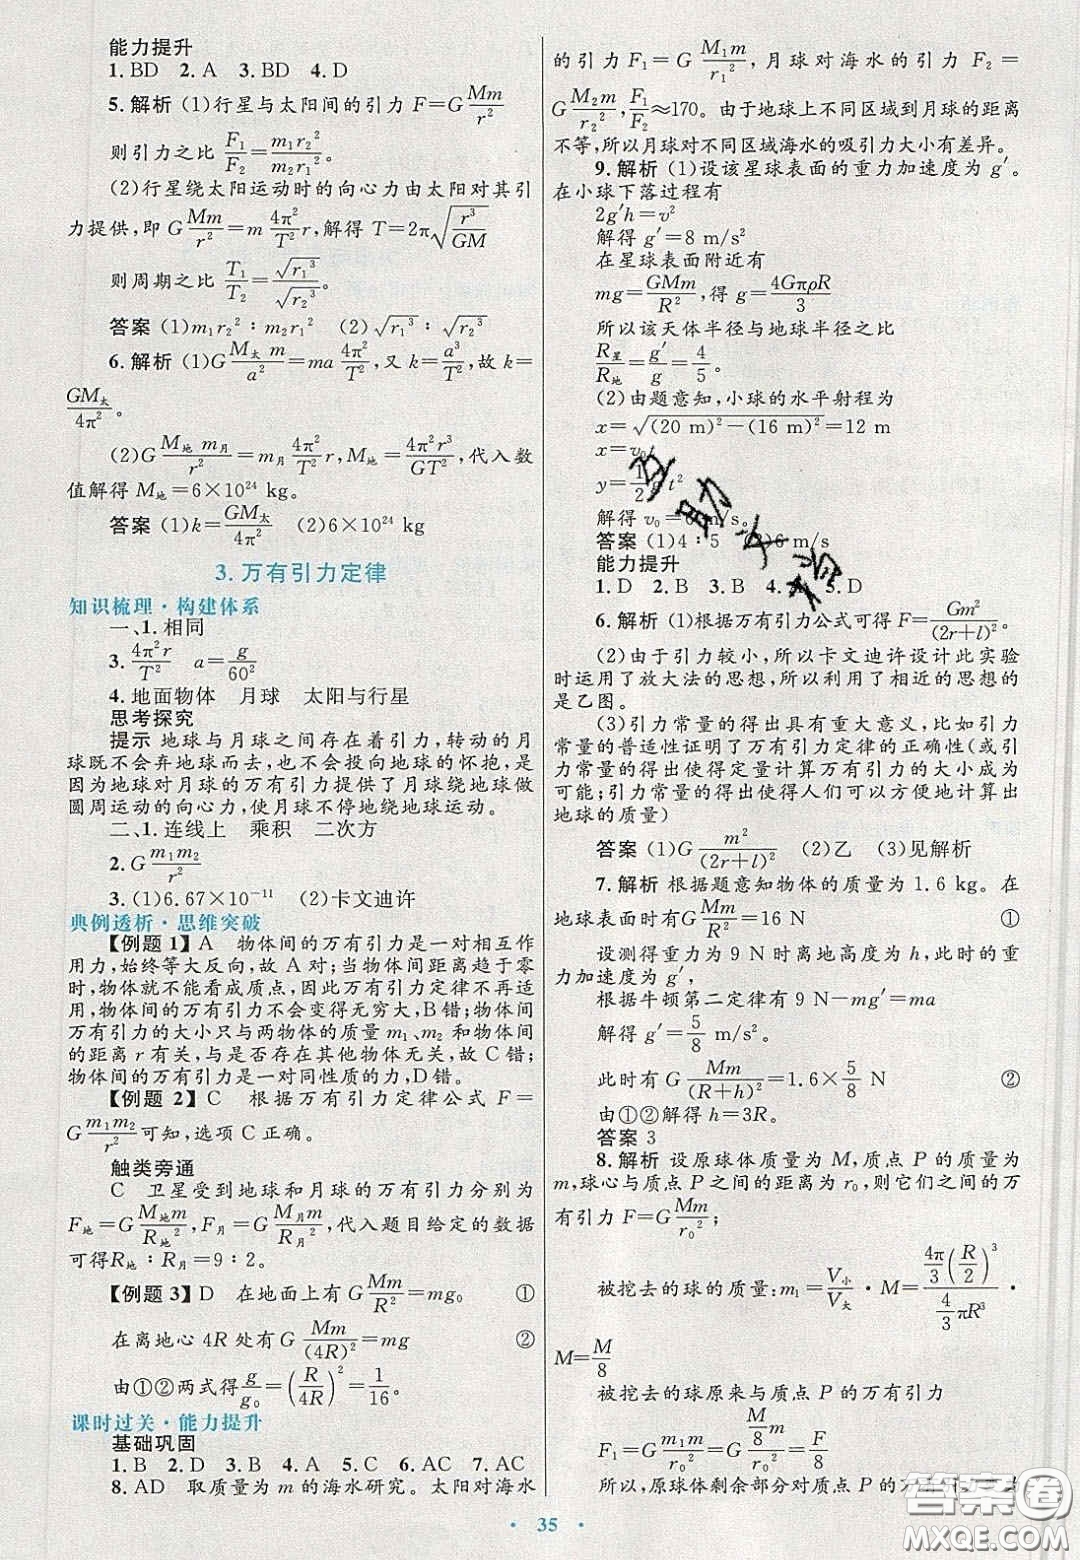 能力提升
1. BD 2. A 3. BD 4. D
5. 解析 (1)行星与太阳间的引力 F=G\frac{Mm}{r^2}
则引力之比 \frac{F_1}{F_2}=\frac{m_1r_2^2}{m_2r_1^2}
(2)行星绕太阳运动时的向心力由太阳对其引
力提供,即 G\frac{Mm}{r^2}=m\frac{4π^2}{T^2}r,解得 T=2π\sqrt{\frac{r^3}{GM}}
则周期之比 \frac{T_1}{T_2}=\frac{\sqrt{r_1^3}}{\sqrt{r_2^3}}
答案 (1)m_1r_2^2∶m_2r_1^2 (2)\sqrt{r_1^3}∶\sqrt{r_2^3}
6. 解析 (1)G\frac{M_太 m}{a^2}=ma\frac{4π^2}{T^2},又 k=\frac{a^3}{T^2},故 k=
\frac{GM_太}{4π^2}。
(2)G\frac{M_地 m_月}{r^2}=m_月\frac{4π^2}{T^2}r,M_地=\frac{4π^2r^3}{GT^2},代入数
值解得 M_地=6×10^{24} kg。
答案 (1)k=\frac{GM_太}{4π^2} (2)6×10^{24} kg
3. 万有引力定律
知识梳理·构建体系
一、1. 相同
3. \frac{4π^2r}{T^2} a=\frac{g}{60^2}
4. 地面物体 月球 太阳与行星
思考探究
提示 地球与月球之间存在着引力,转动的月
球既不会弃地球而去,也不会投向地球的怀抱,是
因为地球对月球的万有引力提供了月球绕地球做
圆周运动的向心力,使月球不停地绕地球运动。
二、1. 连线上 乘积 二次方
2. G\frac{m_1m_2}{r^2}
3. (1)6.67×10^{-11} (2)卡文迪许
典例透析·思维突破
【例题 1】 A 物体间的万有引力是一对相互作
用力,始终等大反向,故 A 对;当物体间距离趋于零
时,物体就不能看成质点,因此万有引力定律不再适
用,物体间的万有引力不会变得无穷大,B错;物体间
万有引力的大小只与两物体的质量 m_1、m_2 和物体间
的距离 r 有关,与是否存在其他物体无关,故 C 错;
物体间的万有引力是一对同性质的力,D错。
【例题 2】 C 根据万有引力定律公式 F=
G\frac{m_1m_2}{r^2}可知,选项 C 正确。
触类旁通
C 卫星受到地球和月球的万有引力分别为
F_地=G\frac{M_地m}{R_地^2},F_月=G\frac{M_月m}{R_月^2},代入题目给定的数据
可得R_地∶R_月=9∶2。
【例题 3】 D 在地面上有 G\frac{Mm}{R^2}=mg_0 ①
在离地心 4R 处有 G\frac{Mm}{(4R)^2}=mg ②
由①②两式得\frac{g}{g_0}=(\frac{R}{4R})^2=\frac{1}{16}。
课时过关·能力提升
基础巩固
1. B 2. D 3. B 4. A 5. C 6. AC 7. AC
8. AD 取质量为 m 的海水研究。太阳对海水
的引力 F_1=G\frac{M_1m}{r_1^2},月球对海水的引力 F_2=
G\frac{M_2m}{r_2^2},\frac{F_1}{F_2}≈170。由于地球上不同区域到月球的距离
不等,所以月球对不同区域海水的吸引力大小有差异。
9. 解析 (1)设该星球表面的重力加速度为 g′。
在小球下落过程有
2g′h=v^2
解得 g′=8 m/s^2
在星球表面附近有
mg=\frac{GMm}{R^2},得 g=\frac{4GπρR}{3}
所以该天体半径与地球半径之比
\frac{R_星}{R_地}=\frac{g′}{g}=\frac{4}{5}。
(2)由题意知,小球的水平射程为
x=\sqrt{(20 m)^2-(16 m)^2}=12 m
x=v_0t
y=\frac{1}{2}g′t^2
解得 v_0=6 m/s。
答案 (1)4∶5 (2)6 m/s
能力提升
1. D 2. B 3. B 4. A 5. D
6. 解析 (1)根据万有引力公式可得 F=\frac{Gm^2}{(2r+l)^2}。
(2)由于引力较小,所以卡文迪许设计此实验
时运用了放大法的思想,所以利用了相近的思想的
是乙图。
(3)引力常量的得出具有重大意义,比如引力
常量的普适性证明了万有引力定律的正确性(或引
力常量的得出使得定量计算万有引力的大小成为
可能;引力常量的得出使得人们可以方便地计算出
地球的质量)
答案 (1)G\frac{m^2}{(2r+l)^2} (2)乙 (3)见解析
7. 解析 根据题意知物体的质量为 1.6 kg。在
地球表面时有G\frac{Mm}{R^2}=16 N ①
设测得重力为 9 N 时离地高度为 h,此时的重
力加速度为 g′,
根据牛顿第二定律有 9 N-mg′=ma
解得 g′=\frac{5}{8} m/s^2。
此时有 G\frac{Mm}{(R+h)^2}=1.6×\frac{5}{8} N ②
由①②解得 h=3R。
答案 3
8. 解析 设原球体质量为 M,质点 P 的质量为
m,球心与质点 P 之间的距离为 r_0,则它们之间的万
有引力 F=G\frac{Mm}{r_0^2};
被挖去的球的质量:m_1=\frac{V_小}{V_大}·M=\frac{\frac{4π}{3}(\frac{R}{2})^3}{\frac{4}{3}πR^3}·
M=\frac{M}{8}
被挖去的球原来与质点 P 的万有引力
F_1=G\frac{m_1m}{r_0^2}=G\frac{\frac{M}{8}m}{r_0^2}=\frac{F}{8}
所以,原球体剩余部分对质点 P 的万有引力变为
·35·
互助文档
答案圈
MXQE.COM